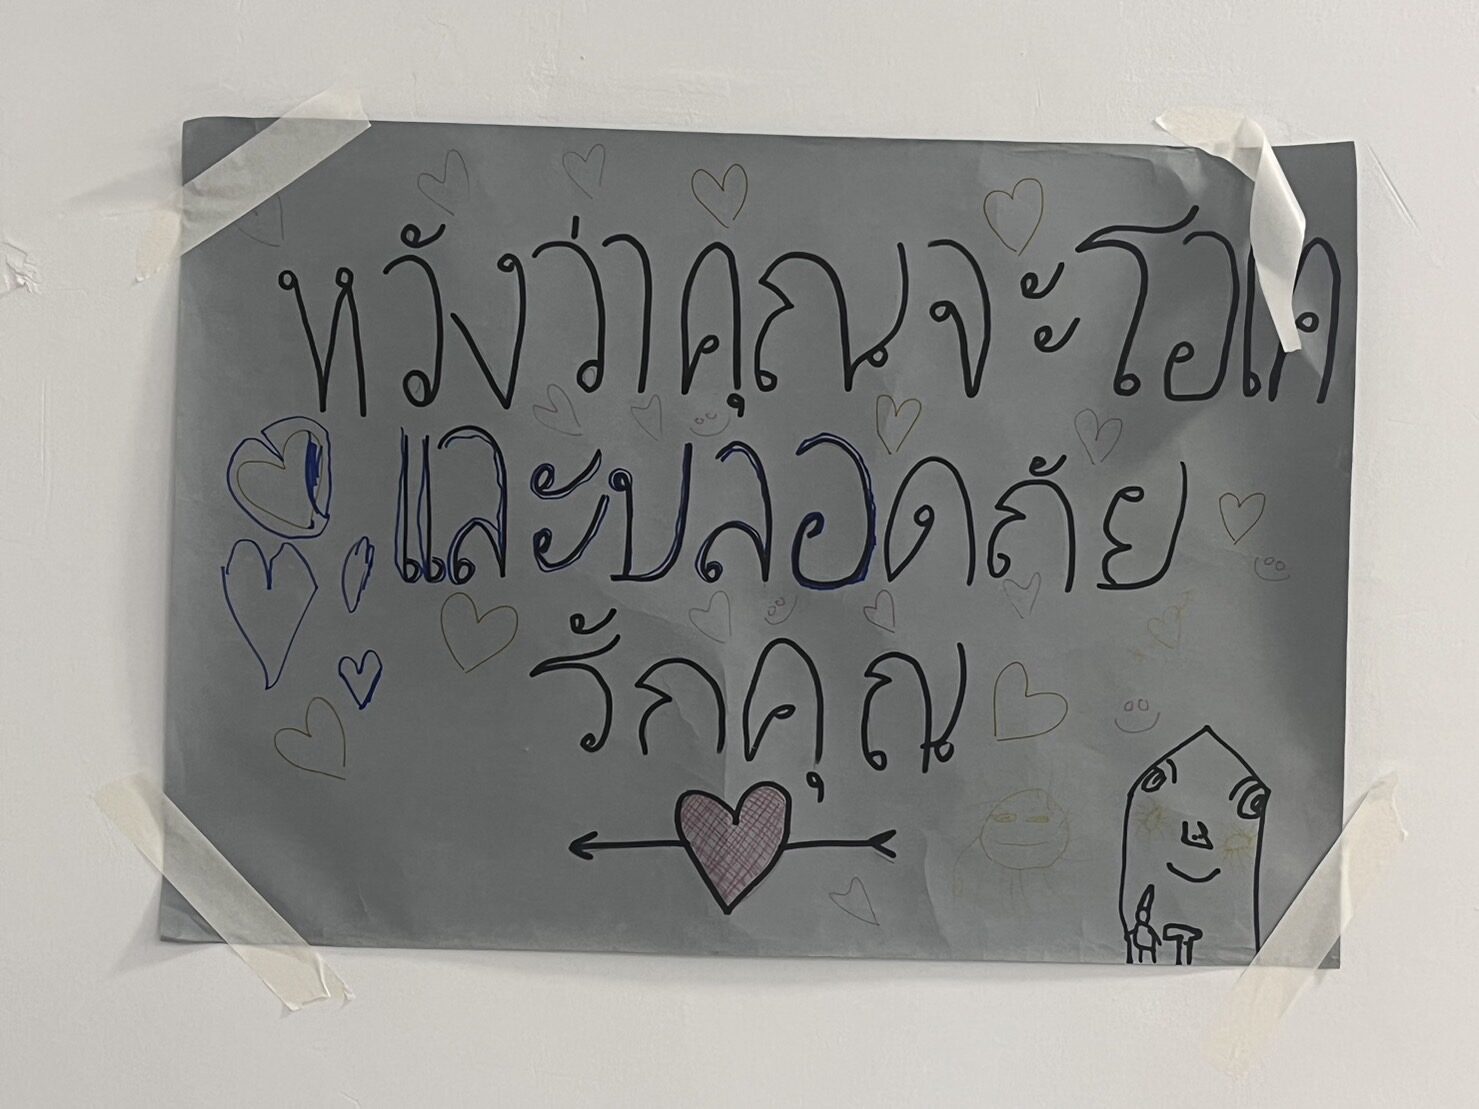 หวังว่าคุณจะโอเค
และปลอดภัย
รักคุณ